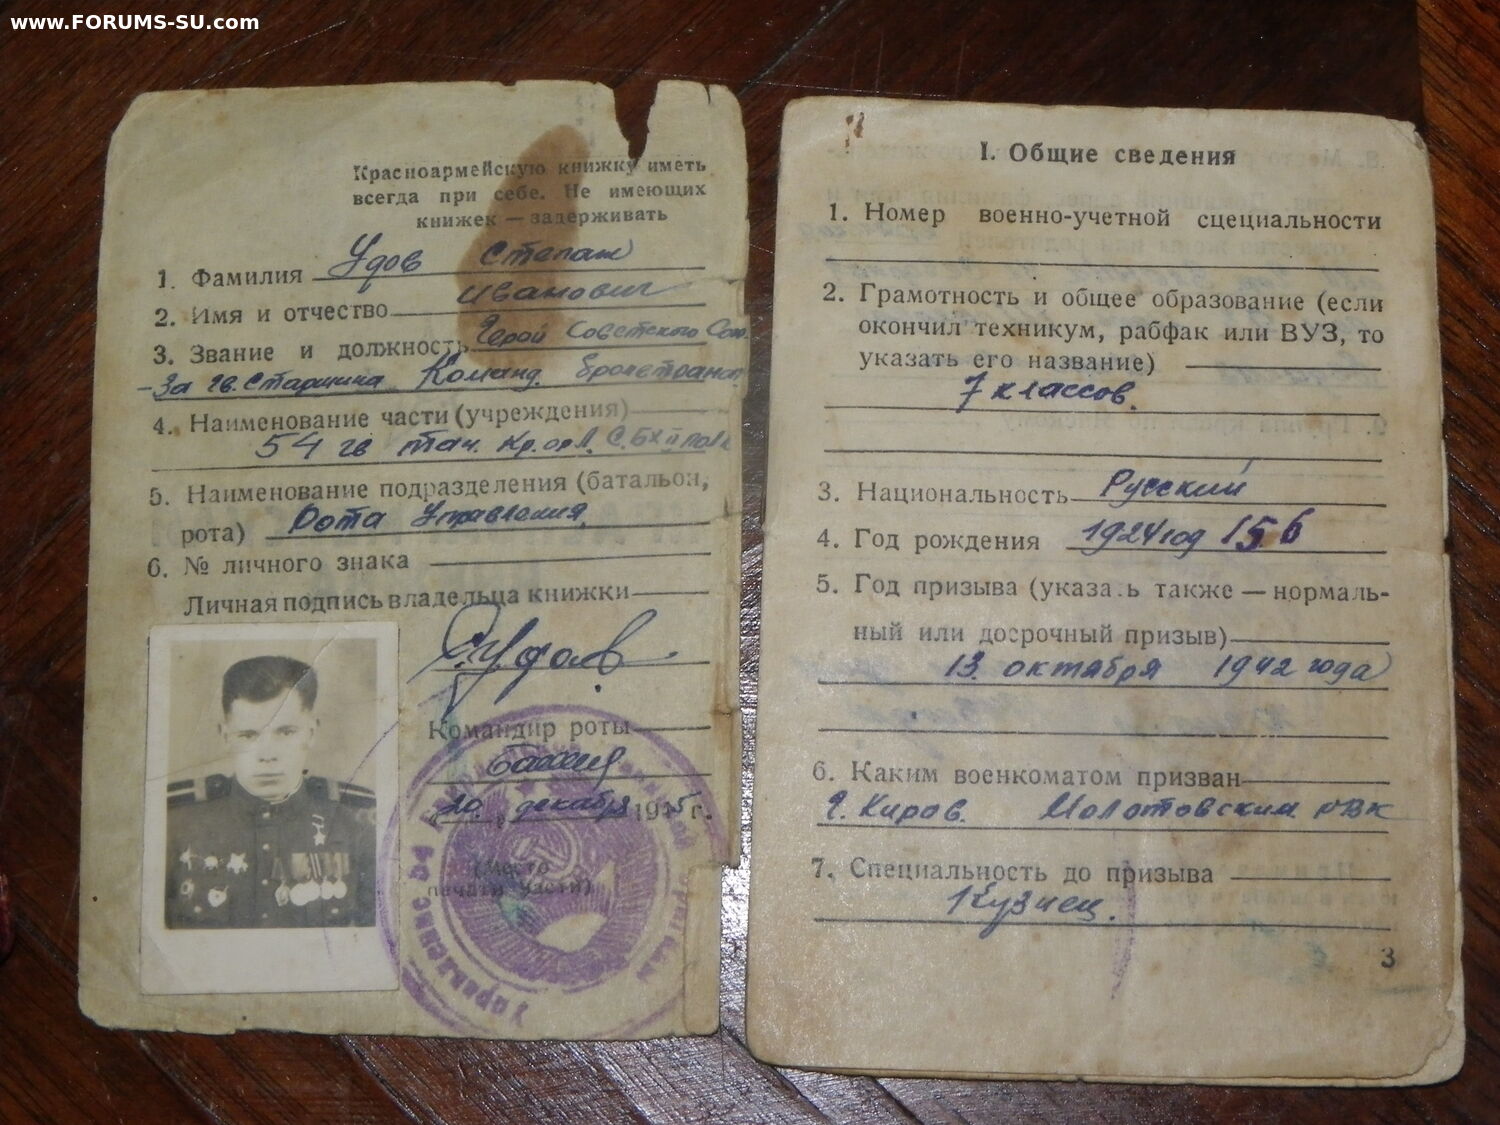 www.FORUMS-SU.com
Красноармейскую книжку иметь
всегда при себе. Не имеющих
книжек — задерживать
1. Фамилия Удов Степан
2. Имя и отчество Иванович
3. Звание и должность Герой Советского Союз
-за гв. старшина Команд. бронетранс
4. Наименование части (учреждения)
54 гв тан. Кр. ор Л. С. БХ
5. Наименование подразделения (батальон,
рота) Рота Управления
6. № личного знака
Личная подпись владельца книжки
С.Удов
Командир роты
20. декабря 1945 г.
(Место
печати части)
Управление 54
I. Общие сведения
1. Номер военно-учетной специальности
2. Грамотность и общее образование (если
окончил техникум, рабфак или ВУЗ, то
указать его название)
7 классов.
3. Национальность Русский
4. Год рождения 1924 год 156
5. Год призыва (указать также — нормаль-
ный или досрочный призыв)
13 октября 1942 года
6. Каким военкоматом призван
г. Киров. Молотовским РВК
7. Специальность до призыва
Кузнец.
3